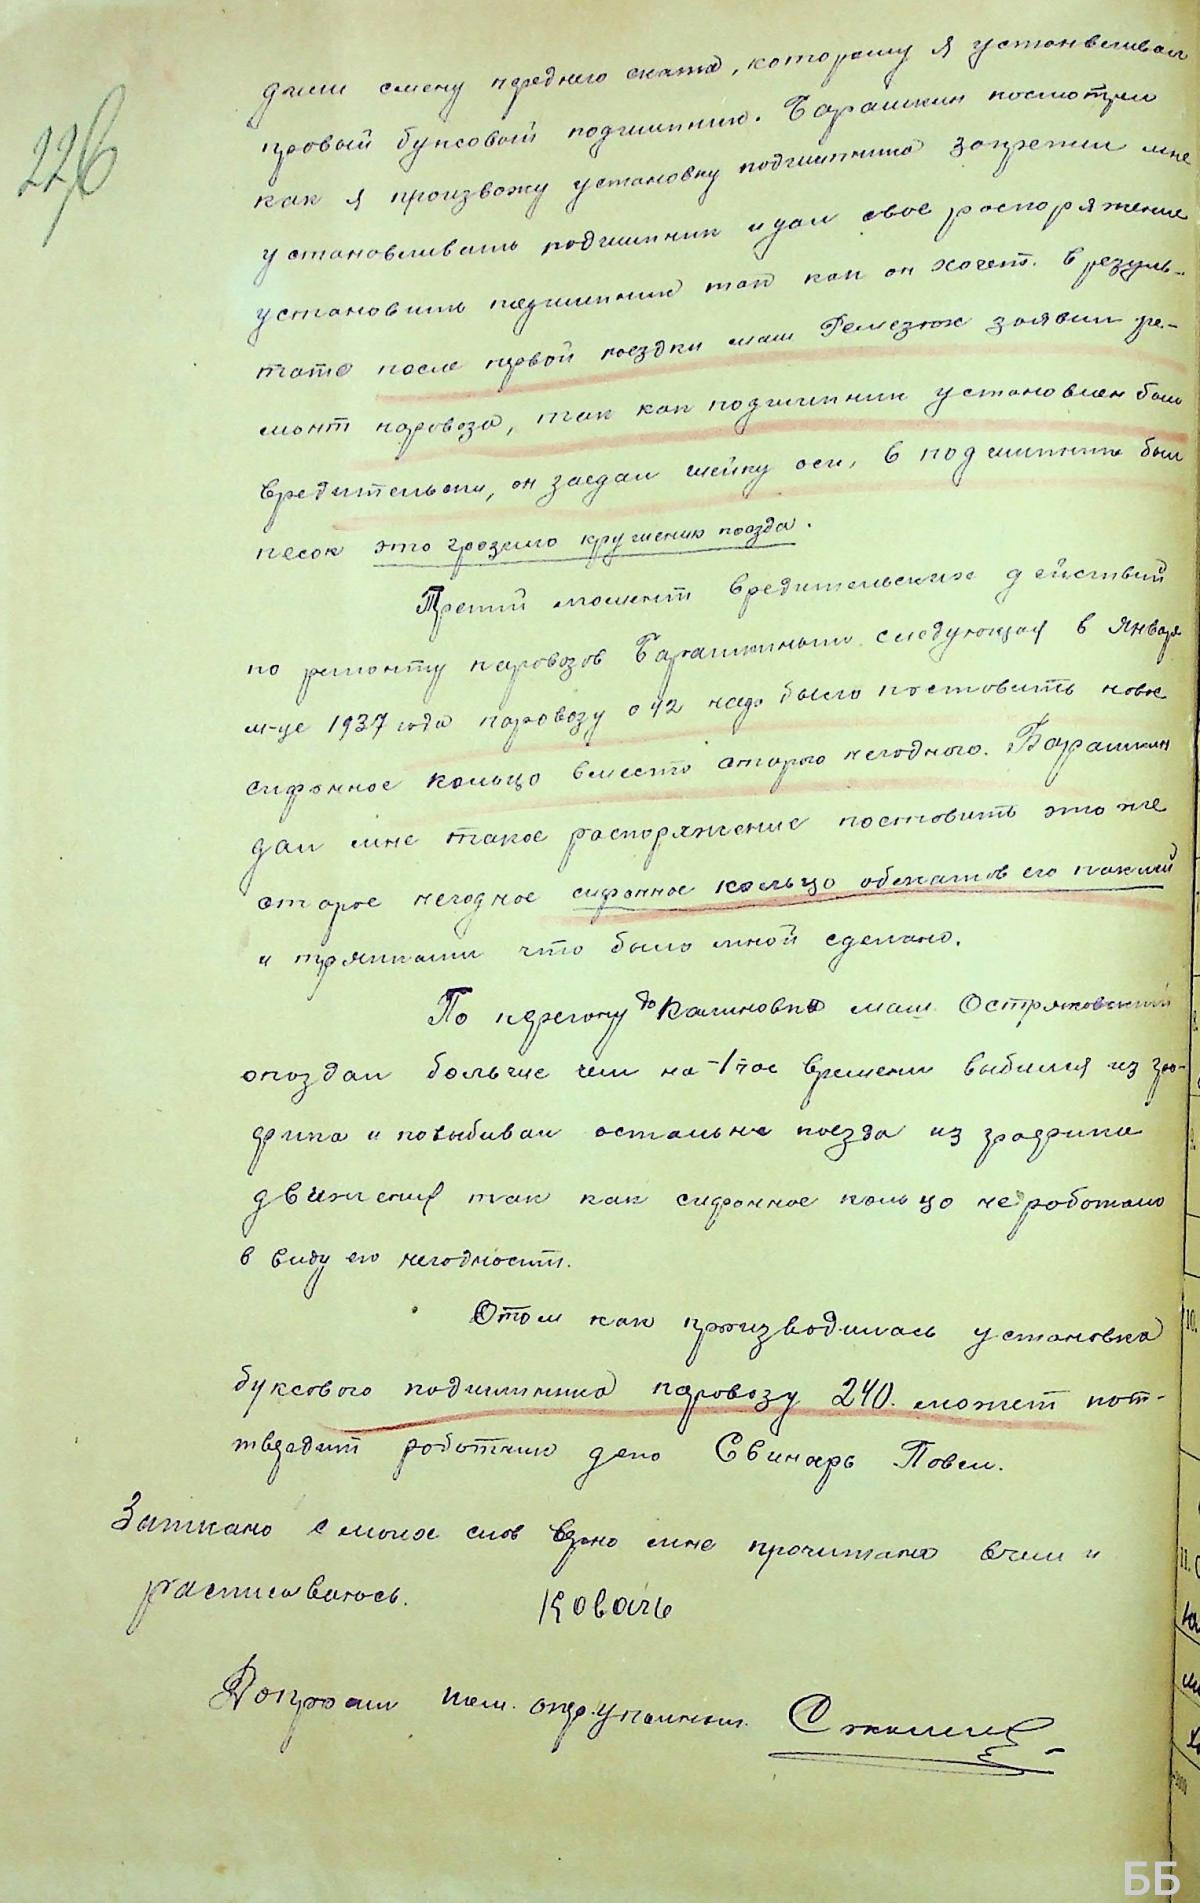 226
дили смену переднего ската, которому я устанвливал
правый буксовый подшипник. Барашкин посмотрел
как я произвожу установку подшипника запретил мне
устанавливать подшипник и дал свое распоряжение
установить подшипник так как он хочет. в резуль-
тате после первой поездки маш Ремезюк заявил ре-
монт паровоза, так как подшипник установлен был
вредительски, он заедал шейку оси, в подшипнике был
песок это грозило крушению поезда.
Третий момент вредительских действий
по ремонту паровозов Барашкиным следующая в Январе
м-це 1937 года паровозу о 42 надо было поставить новое
сифонное кольцо вместо старого негодного. Барашкин
дал мне такое распоряжение поставить это же
старое негодное сифонное кольцо обекатов его паклей
и тряпками что было мной сделано.
По перегону до Калиновка маш. Остряковский
опоздал больше чем на -1 час времени выбился из гра-
фика и повыбивал остальне поезда из графика
движения так как сифонное кольцо не работало
в виду его негодности.
Отом как призводилась установка
буксового подшипника паровозу 240. может пот-
твердит работник депо Свинарь Павел.
Записано с моих слов верно мне прочитано в чем и
расписываюсь. Ковачь
Допросил пом. опер. уполномоч.
ББ